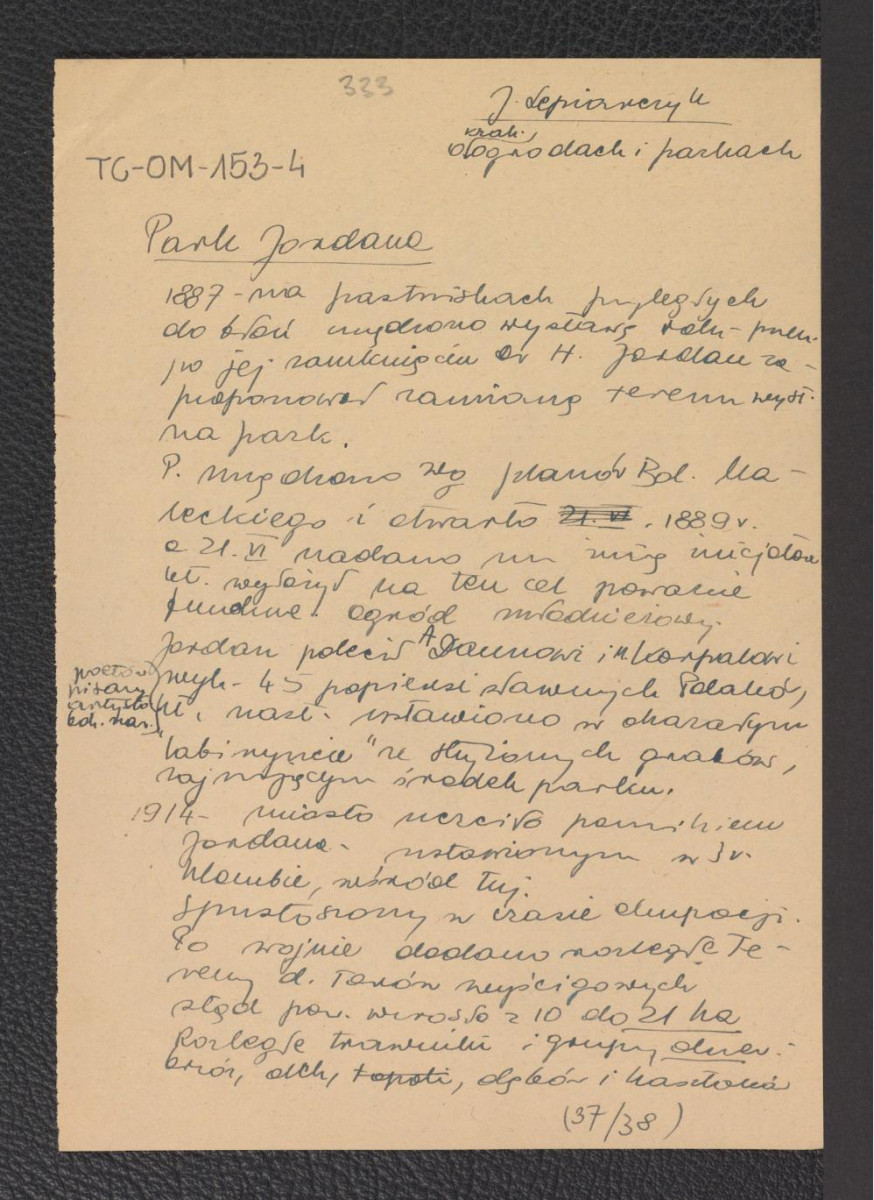 333
J. Lepiarczyk
krak.
o ogrodach i parkach
TC-OM-153-4
Park Jordana
1887 - na pastwiskach przyległych
do błoń urządzono wystawę roln-przem.
po jej zamknięciu dr H. Jordan za-
proponował zamianę terenu wyst.
na park.
P. urządzono wg planów Bol. Ma-
leckiego i otwarto 21. VI . 1889 r.
a 21. VI nadano mu imię inicjatora
kt. wyłożył na ten cel poważne
fundusze. ogród młodzieżowy.
Jordan polecił A Daunowi i M. Korpalowi
wyk. 45 popiersi sławnych Polaków,
poetów
pisarzy
artystów
boh. nar.
kt. nast. ustawiono w okazałym
"labiryncie" ze strzyżonych grabów,
zajmującym środek parku.
1914 - miasto uczciło pomnikiem
Jordana - ustawionym w
klombie, wśród tuj.
Spustoszony w czasie okupacji.
Po wojnie dodano rozległe te-
reny d. torów wyścigowych
stąd pow. wzrosła z 10 do 21 ha
Rozległe trawniki i grupy drzew:
brzóz, olch, topoli, dębów i kasztanów
(37/38)